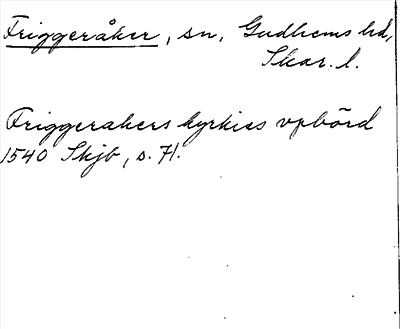 Friggeråker, sn, Gudhems hd,
Skar. l.
Friggerakers kyrkies vpbörd
1540 Skjb, s. 71.